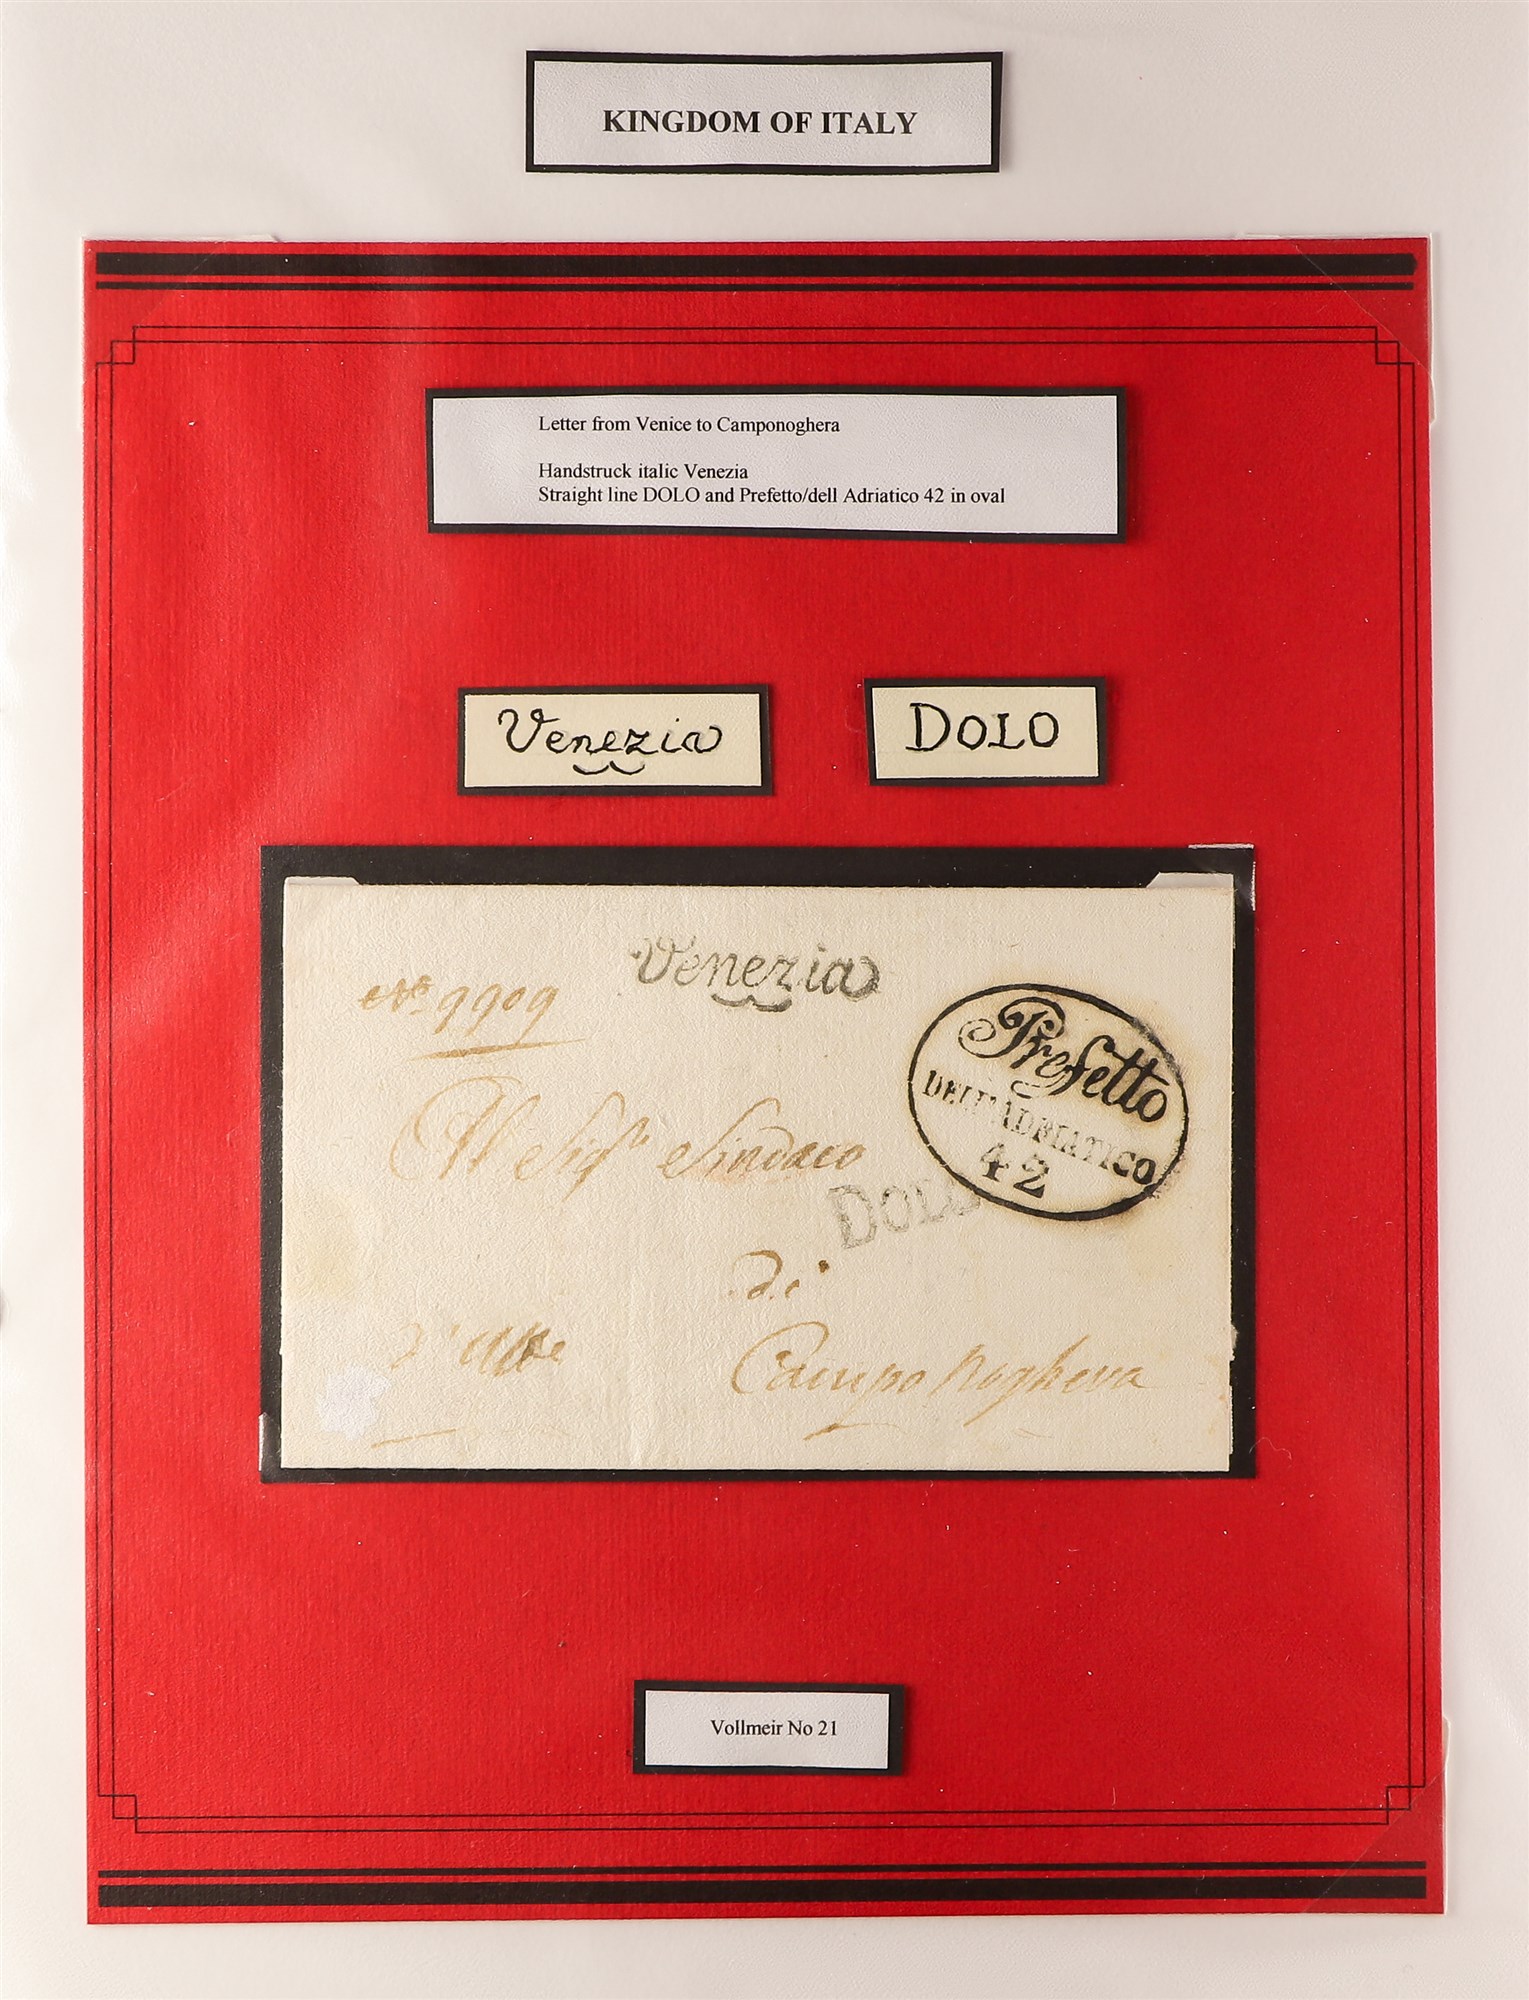 KINGDOM OF ITALY
Letter from Venice to Camponoghera
Handstruck italic Venezia
Straight line DOLO and Prefetto/dell Adriatico 42 in oval
Venezia
DOLO
Venezia
No. 9909
Prefetto
DELL'ADRIATICO
42
Al Sigr Sindaco
DOLO
di
Campo Noghera
Vollmeir No 21